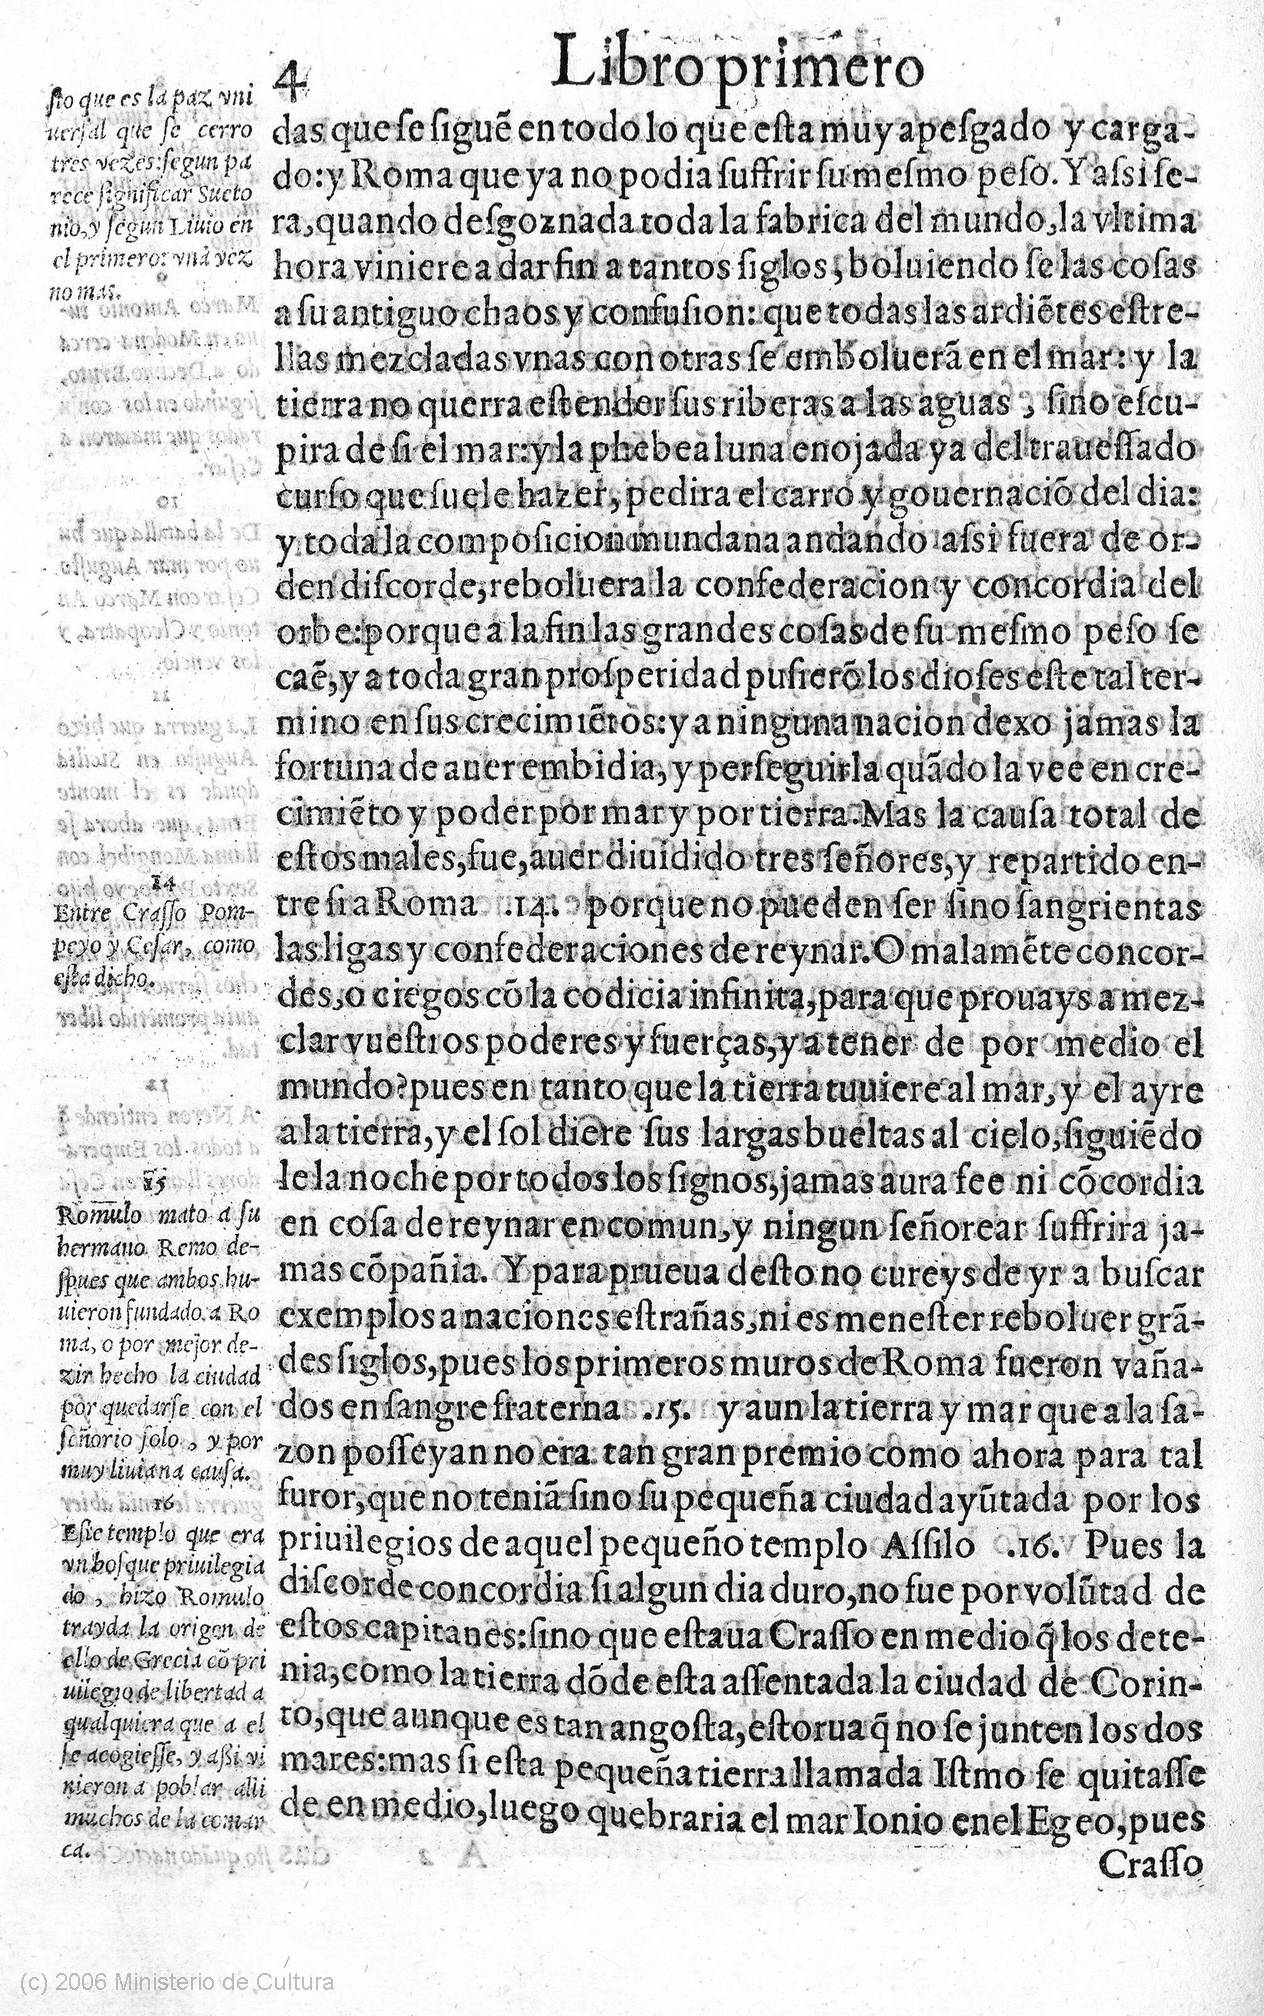 4
Libro primero
ſto que es la paz vni
uerſal que ſe cerro
tres vezes: ſegun pa
rece ſignificar Sueto
nio, y ſegun Liuio en
el primero: vna vez
no mas.
das que ſe ſiguẽ en todo lo que eſta muy apeſgado y carga-
do: y Roma que ya no podia ſuffrir ſu meſmo peſo. Y aſsi ſe-
ra, quando deſgoznada toda la fabrica del mundo, la vltima
hora viniere a dar fin a tantos ſiglos, boluiendo ſe las coſas
a ſu antiguo chaos y confuſion: que todas las ardiẽtes eſtre-
llas mezcladas vnas con otras ſe emboluerã en el mar: y la
tierra no querra eſtender ſus riberas a las aguas, ſino eſcu-
pira de ſi el mar: y la phebea luna enojada ya del traueſſado
curſo que ſuele hazer, pedira el carro y gouernaciõ del dia:
y toda la compoſicion mundana andando aſsi fuera de or-
den diſcorde, reboluera la confederacion y concordia del
orbe: porque a la fin las grandes coſas de ſu meſmo peſo ſe
caẽ, y a toda gran proſperidad puſierõ los dioſes eſte tal ter-
mino en ſus crecimiẽtos: y a ninguna nacion dexo jamas la
fortuna de auer embidia, y perſeguirla quãdo la vee en cre-
cimiẽto y poder por mar y por tierra. Mas la cauſa total de
eſtos males, fue, auer diuidido tres ſeñores, y repartido en-
tre ſi a Roma .14. porque no pueden ſer ſino ſangrientas
las ligas y confederaciones de reynar. O malamẽte concor-
des, o ciegos cõ la codicia infinita, para que prouays a mez-
clar vueſtros poderes y fuerças, y a tener de por medio el
mundo? pues en tanto que la tierra tuuiere al mar, y el ayre
a la tierra, y el ſol diere ſus largas bueltas al cielo, ſiguiẽdo
le la noche por todos los ſignos, jamas aura fee ni cõcordia
en coſa de reynar en comun, y ningun ſeñorear ſuffrira ja-
mas cõpañia. Y para prueua deſto no cureys de yr a buſcar
exemplos a naciones eſtrañas, ni es meneſter reboluer grã-
des ſiglos, pues los primeros muros de Roma fueron vaña-
dos en ſangre fraterna .15. y aun la tierra y mar que a la ſa-
zon poſſeyan no era tan gran premio como ahora para tal
furor, que no teniã ſino ſu pequeña ciudad ayũtada por los
priuilegios de aquel pequeño templo Aſsilo .16. Pues la
diſcorde concordia ſi algun dia duro, no fue por volũtad de
eſtos capitanes: ſino que eſtaua Craſſo en medio q̃ los dete-
nia, como la tierra dõde eſta aſſentada la ciudad de Corin-
to, que aunque es tan angoſta, eſtorua q̃ no ſe junten los dos
mares: mas ſi eſta pequeña tierra llamada Iſtmo ſe quitaſſe
de en medio, luego quebraria el mar Ionio en el Egeo, pues
Craſſo
14
Entre Craſſo Pom-
peyo y Ceſar, como
eſta dicho.
15
Romulo mato a ſu
hermano Remo de-
ſpues que ambos hu-
uieron fundado a Ro
ma, o por mejor de-
zir hecho la ciudad
por quedarſe con el
ſeñorio ſolo, y por
muy liuiana cauſa.
16
Eſte templo que era
vn boſque priuilegia
do, hizo Romulo
trayda la origen de
ello de Grecia cõ pri
uilegio de libertad a
qualquiera que a el
ſe acogieſſe, y aſsi vi
nieron a poblar alli
muchos de la comar
ca.
(c) 2006 Ministerio de Cultura